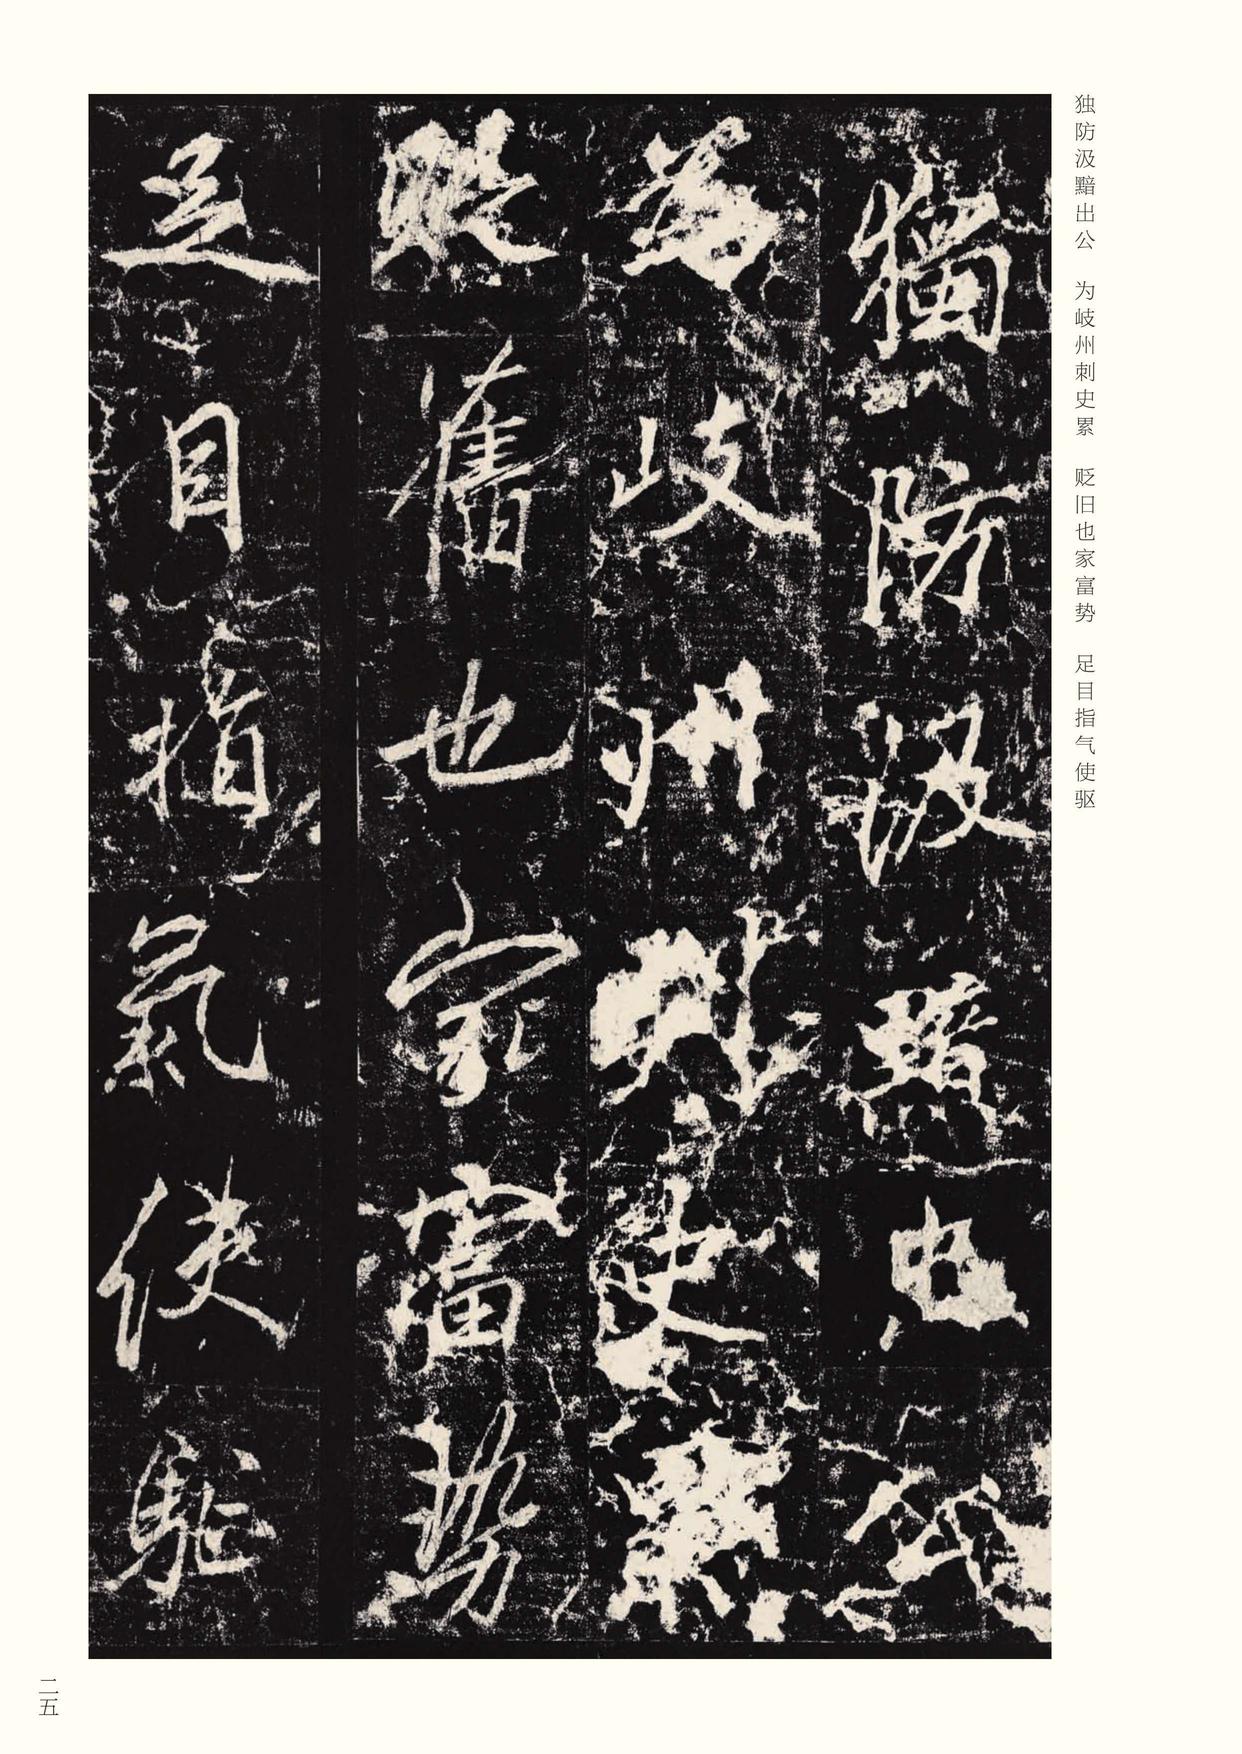 独防汲黯出公　为岐州刺史累　贬旧也家富势　足目指气使驱
獨防汲黯出公
為岐州刺史累
貶舊也家富勢
足目指氣使駈
二五